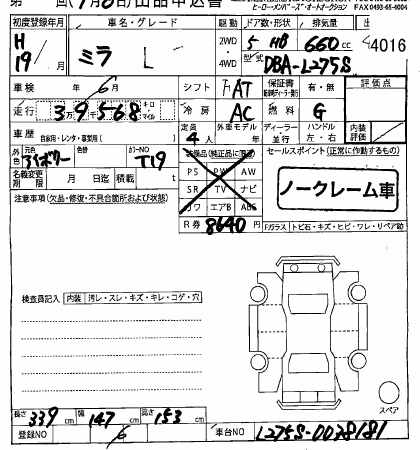 出品申込書
ヒーロー・メンバーズ・オートオークション FAX0493-66-6004
初度登録年月 車名・グレード 駆動 ドア数・形状 排気量
H 19/ 月 ミラ L 2WD 4WD 5 HB 660cc 4016
型式 DBA-L275S
車検 年 6 月 シフト FAT 保証書 有・無 評価点
走行 39568 キロ マイル 冷房 AC 燃料 G
車歴 自家用・レンタ・事業用( ) 定員 4人 外車モデル 年 ディーラー 並行 ハンドル 左・右 内装評価
外色 元色 アイボリー 色替 カラーNO T19 装備品(純正品に限る) セールスポイント(正常に作動するもの)
名義変更期限 月 日迄 積載 t PS PW AW
SR TV ナビ
カワ エアB ABS
ノークレーム車
注意事項(欠品・修復・不具合箇所および状態)
R券 8640円 Fガラス トビ石・キズ・ヒビ・ワレ・リペア跡
検査員記入 内装 汚レ・スレ・キズ・キレ・コゲ・穴
スペア
長さ 339cm 幅 147cm 高さ 153cm
登録NO 6 車台NO L275S-0038181